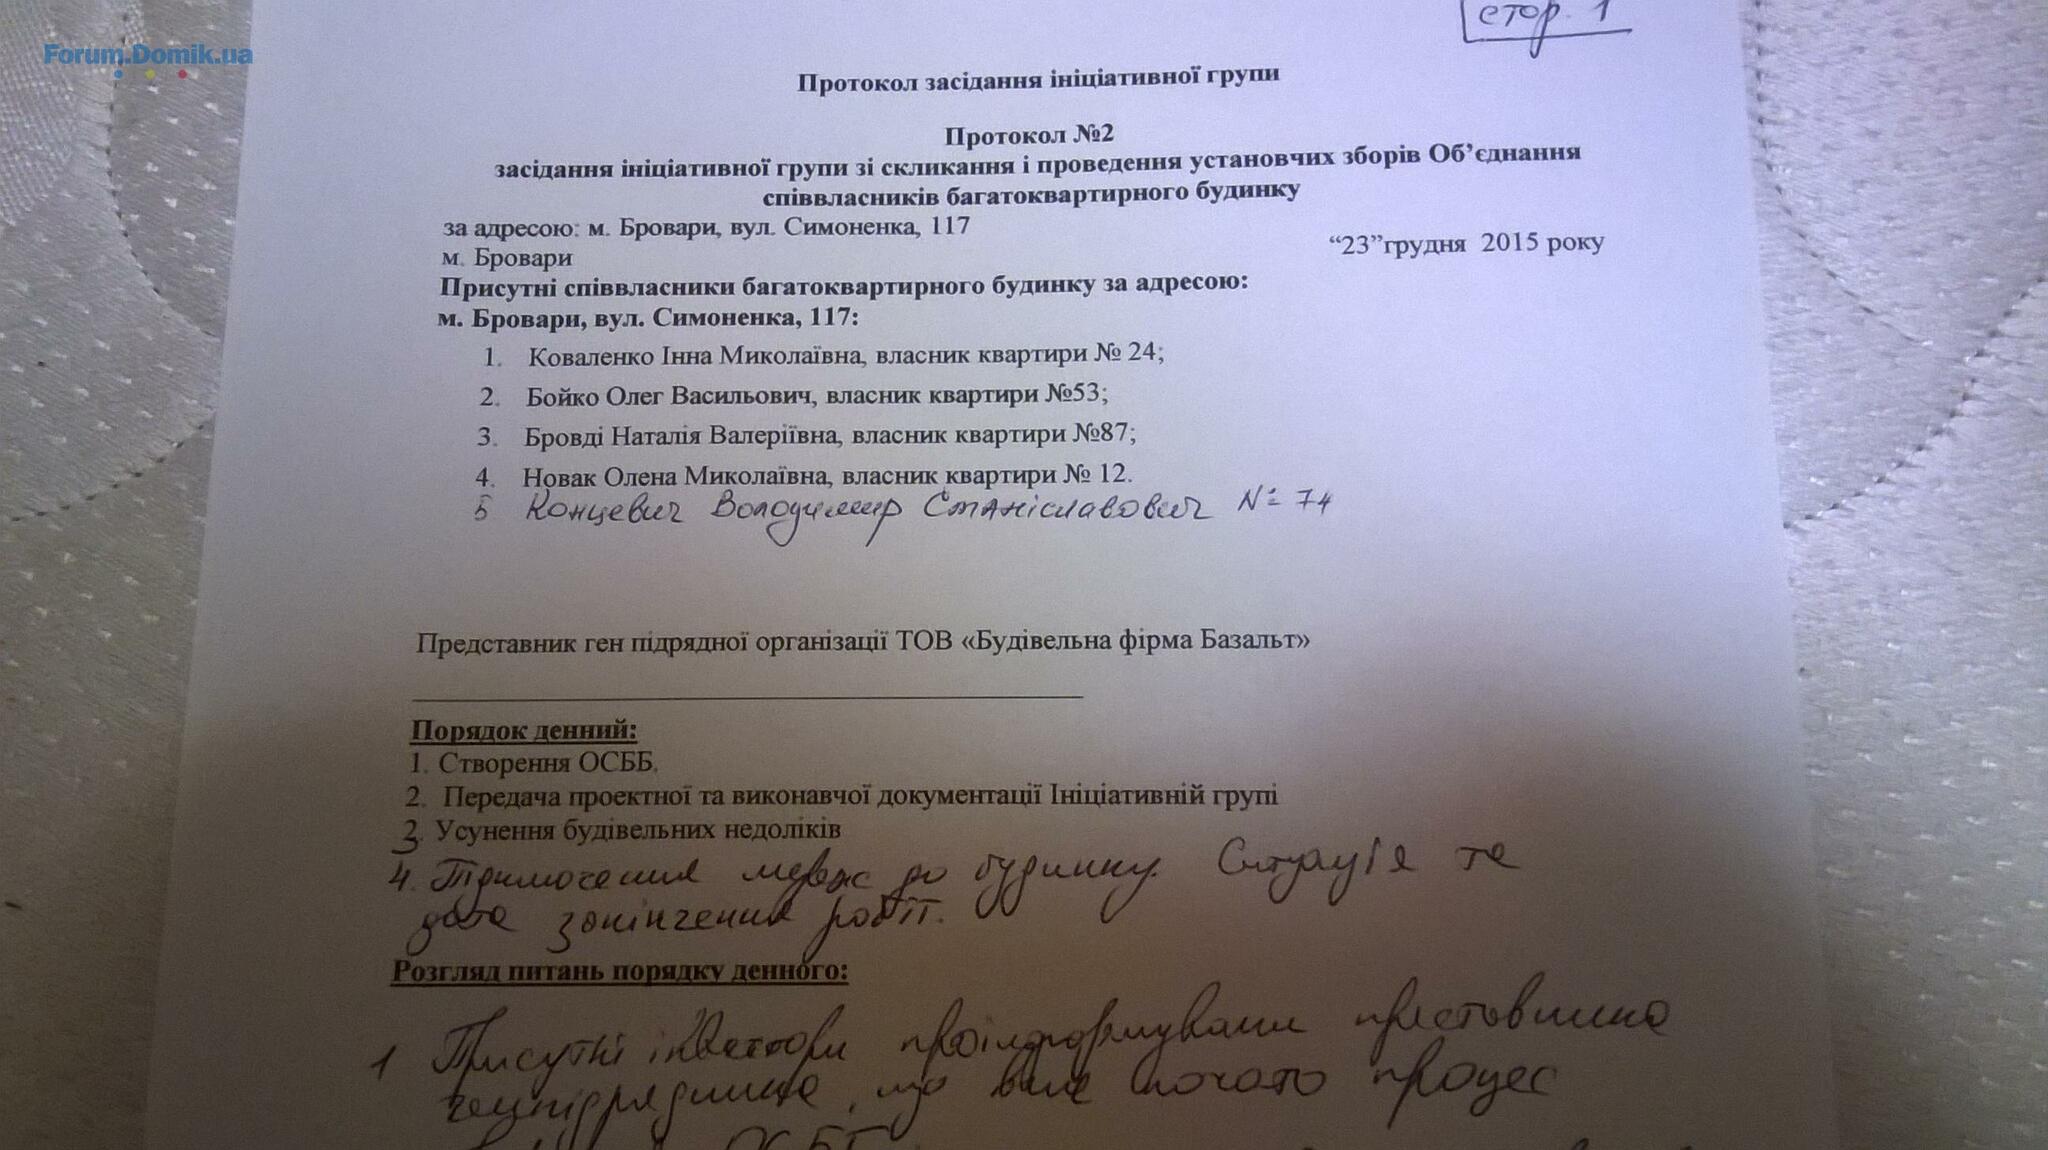 стор. 1
Forum.Domik.ua
Протокол засідання ініціативної групи
Протокол №2
засідання ініціативної групи зі скликання і проведення установчих зборів Об’єднання
співвласників багатоквартирного будинку
за адресою: м. Бровари, вул. Симоненка, 117
м. Бровари “23”грудня 2015 року
Присутні співвласники багатоквартирного будинку за адресою:
м. Бровари, вул. Симоненка, 117:
1. Коваленко Інна Миколаївна, власник квартири № 24;
2. Бойко Олег Васильович, власник квартири №53;
3. Бровді Наталія Валеріївна, власник квартири №87;
4. Новак Олена Миколаївна, власник квартири № 12.
5 Концевич Володимир Станіславович № 74
Представник ген підрядної організації ТОВ «Будівельна фірма Базальт»
Порядок денний:
1. Створення ОСББ.
2. Передача проектної та виконавчої документації Ініціативній групі
3. Усунення будівельних недоліків
4. мереж до будинку. Ситуація та
дата закінчення робіт.
Розгляд питань порядку денного:
1 Присутні інвестори проінформували
що вже почато процес
ОСББ